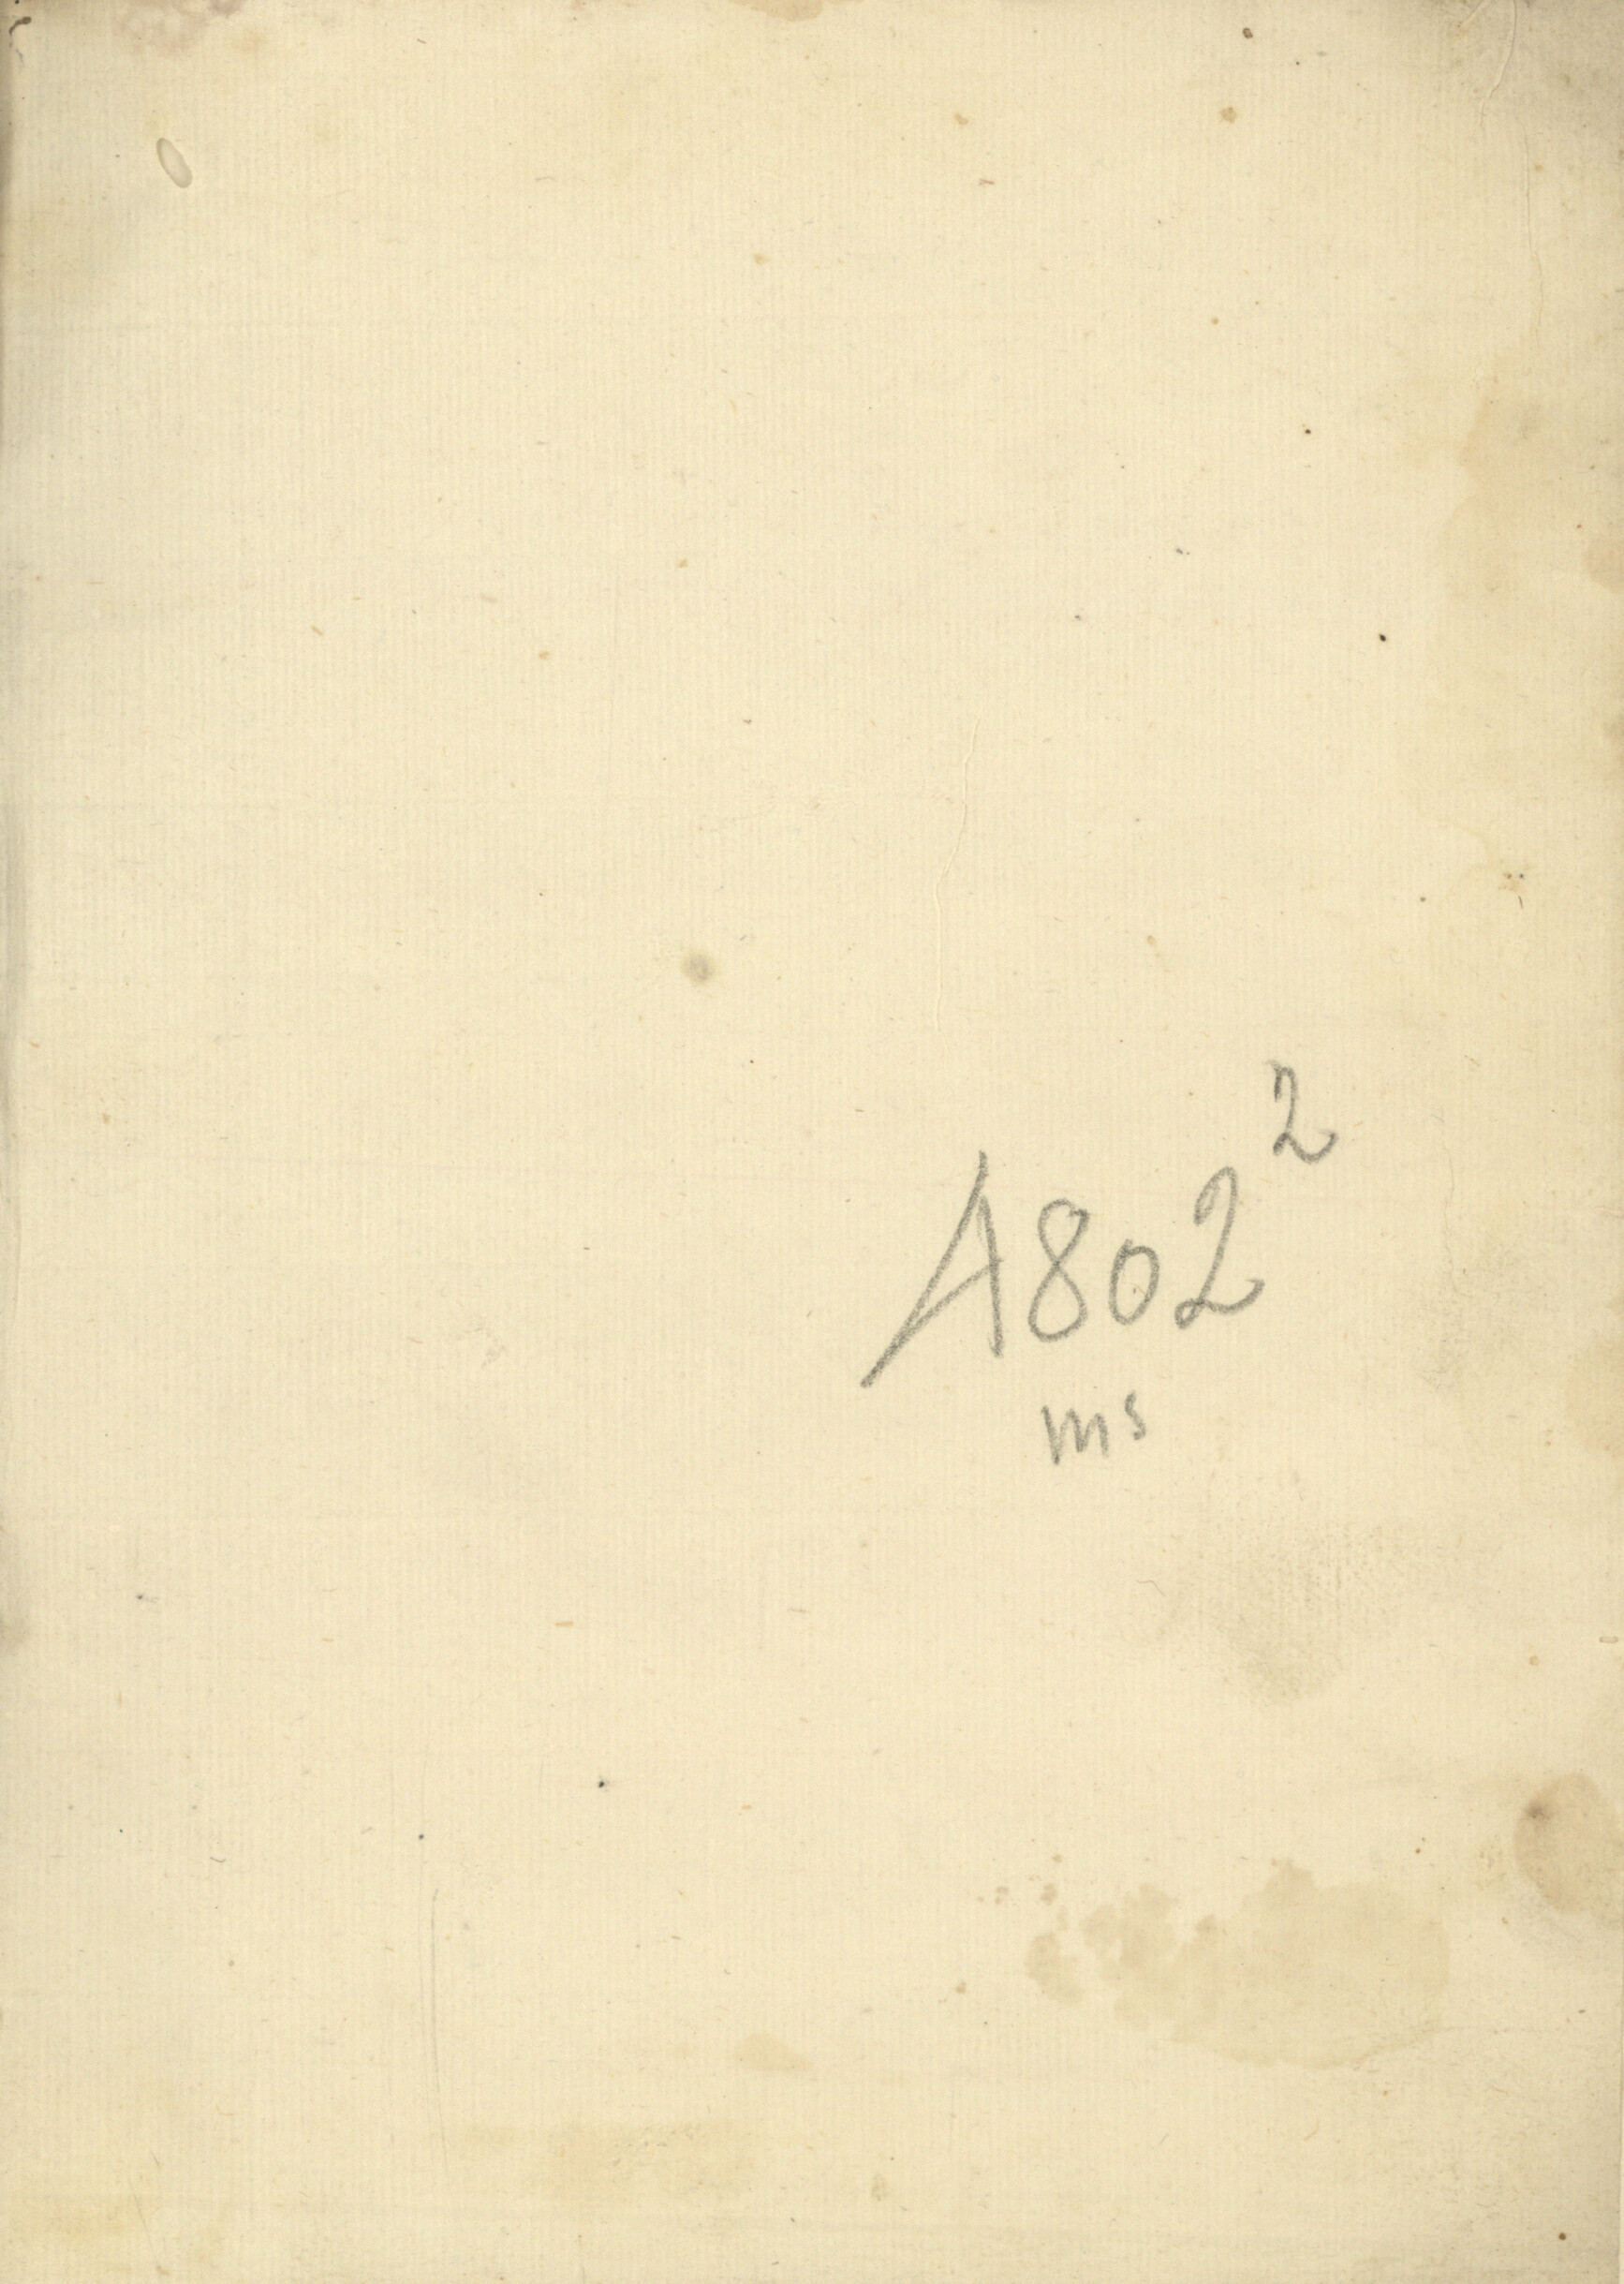 A802²
ms